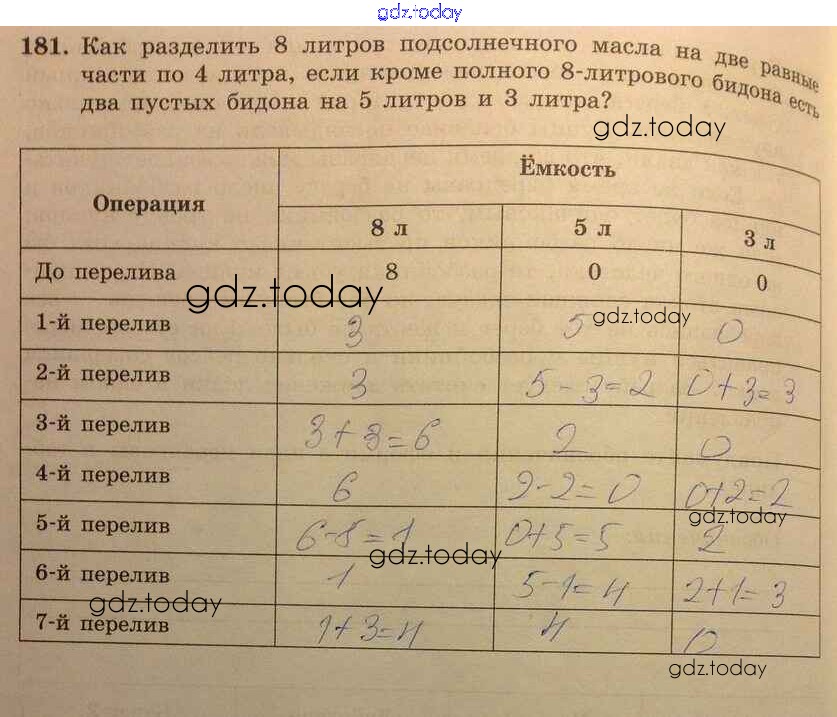 gdz.today
181. Как разделить 8 литров подсолнечного масла на две равные
части по 4 литра, если кроме полного 8-литрового бидона есть
два пустых бидона на 5 литров и 3 литра?
gdz.today
Операция Ёмкость
8 л 5 л 3 л
До перелива 8 0 0
gdz.today
1-й перелив 3 5 0
gdz.today
2-й перелив 3 5-3=2 0+3=3
3-й перелив 3+3=6 2 0
4-й перелив 6 2-2=0 0+2=2
gdz.today
5-й перелив 6-5=1 0+5=5 2
gdz.today
6-й перелив 1 5-1=4 2+1=3
gdz.today
7-й перелив 1+3=4 4 0
gdz.today